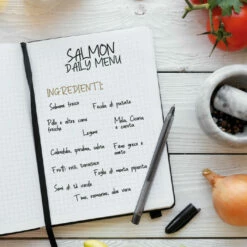 SALMON
DAILY MENU
INGREDIENTI:
Salmone fresco
Fecola di patate
Pollo e altre carni fresche
Mela, Cicoria e carota
Legumi
Calendula, gardenia, salvia
Fieno greco e mirto
Frutti rossi, tarassaco
Foglie di menta piperita
Semi di tè verde
Timo, romarino, aloe vera